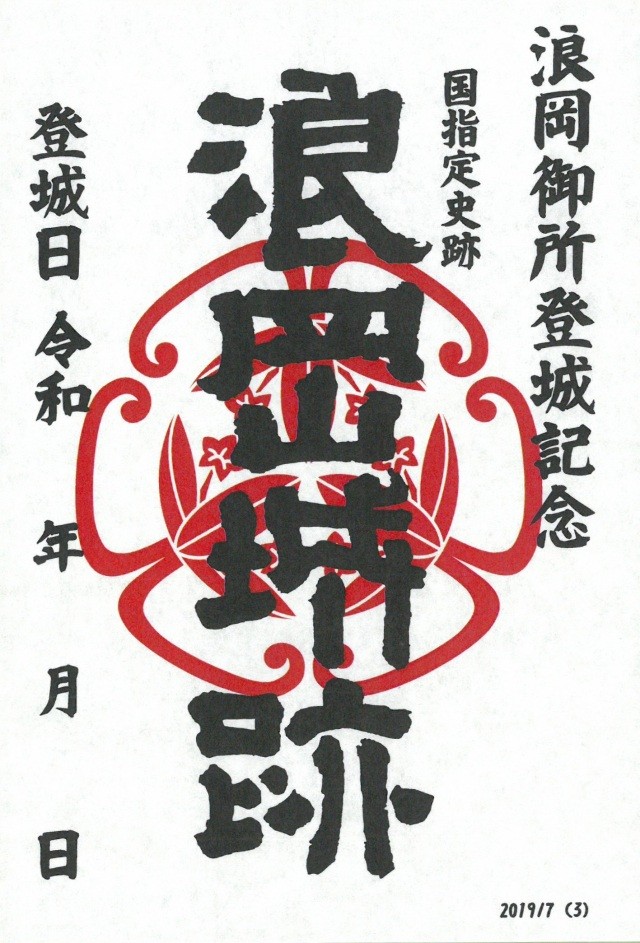 浪岡御所登城記念
国指定史跡
浪岡城跡
登城日 令和 年 月 日
2019/7 (3)